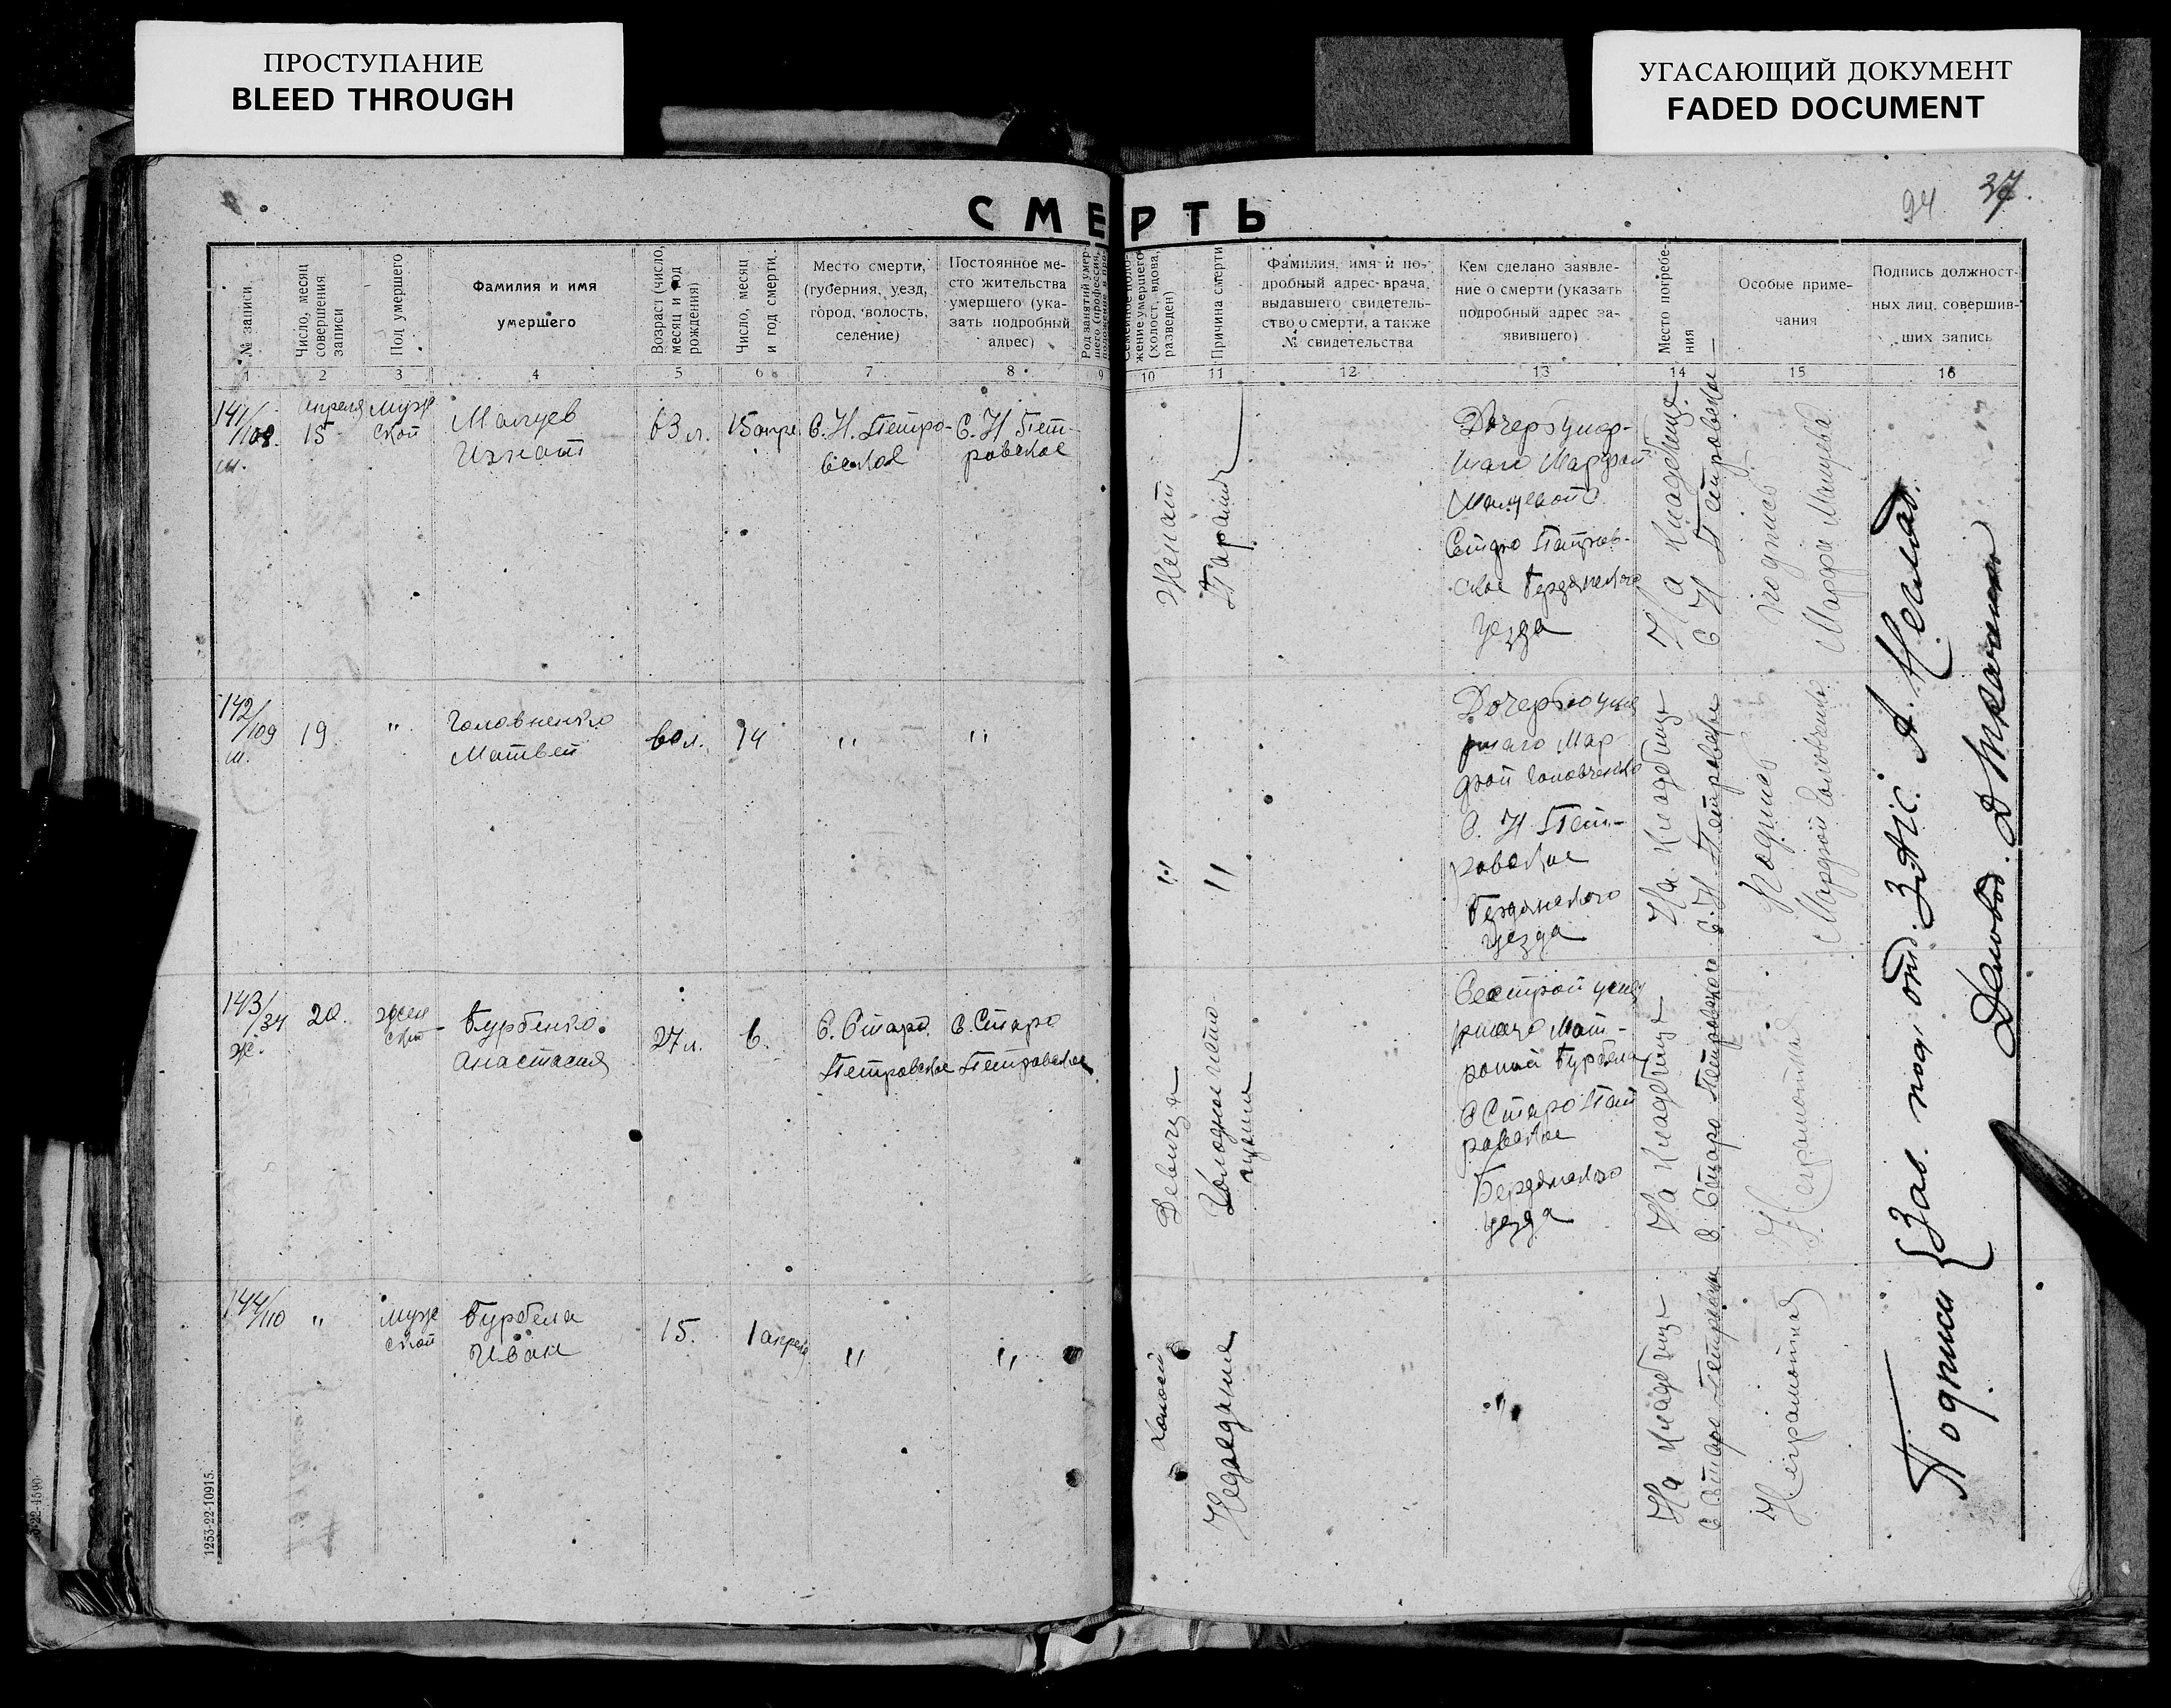 ПРОСТУПАНИЕ
BLEED THROUGH
УГАСАЮЩИЙ ДОКУМЕНТ
FADED DOCUMENT
94 37.
СМЕРТЬ
№ записи
Число, месяц
совершения
записи
Пол умершего
Фамилия и имя
умершего
Возраст (число,
месяц и год
рождения)
Число, месяц
и год смерти.
Место смерти,
(губерния, уезд,
город, волость,
селение)
Постоянное ме-
сто жительства
умершего (ука-
зать подробный
адрес)
Род занятий умер-
шего (профессия,
Семейное поло-
жение умершего
(холост, вдова,
разведен)
Причина смерти
Фамилия, имя и по-
дробный адрес врача,
выдавшего свидетель-
ство о смерти, а также
№ свидетельства
Кем сделано заявле-
ние о смерти (указать
подробный адрес за-
явившего)
Место погребе-
ния
Особые приме-
чания
Подпись должност-
ных лиц, совершив-
ших запись
1 2 3 4 5 6 7 8 9 10 11 12 13 14 15 16
141/108 м.
апреля
15
муж
ской
Малцев
Игнат
63 л.
15 апре.
С. Н. Петро-
вское
С. Н. Пет-
ровское
Женат
Дочерью умер-
шаго Марфой
Малцевой
уезда
На кладбище
С Н Петровки
подпись
Марфа Малцева
142/109 м.
19
"
Головненко
Матвей
60 л.
14
"
"
"
"
Дочерью уме
ршаго Мар
фой Головченко
С. Н. Пет-
ровское
Бердянского
уезда
На кладбище
С. Н. Петровки
Подпись
Марфой Головченко
143/34 ж.
20.
жен
ской
Бурбенко
Анастасия
27 л.
6.
С. Старо
Петровское
С. Старо
Петровское
Девица
Сестрой уме
ршаго Мат-
роной Бурбела
С Старо Пет
ровское
Бердянского
уезда
На кладбище
С. Старо Петровского
Неграмотная
144/110
"
муж
ской
Бурбела
Иван
15.
1 апреля
"
"
холост
Недоедание
"
На кладбище
С. Старо Петровки
Неграмотная
Подписи { Зав. под. отд. ЗАГС.
Делов.
1253-22-10915.